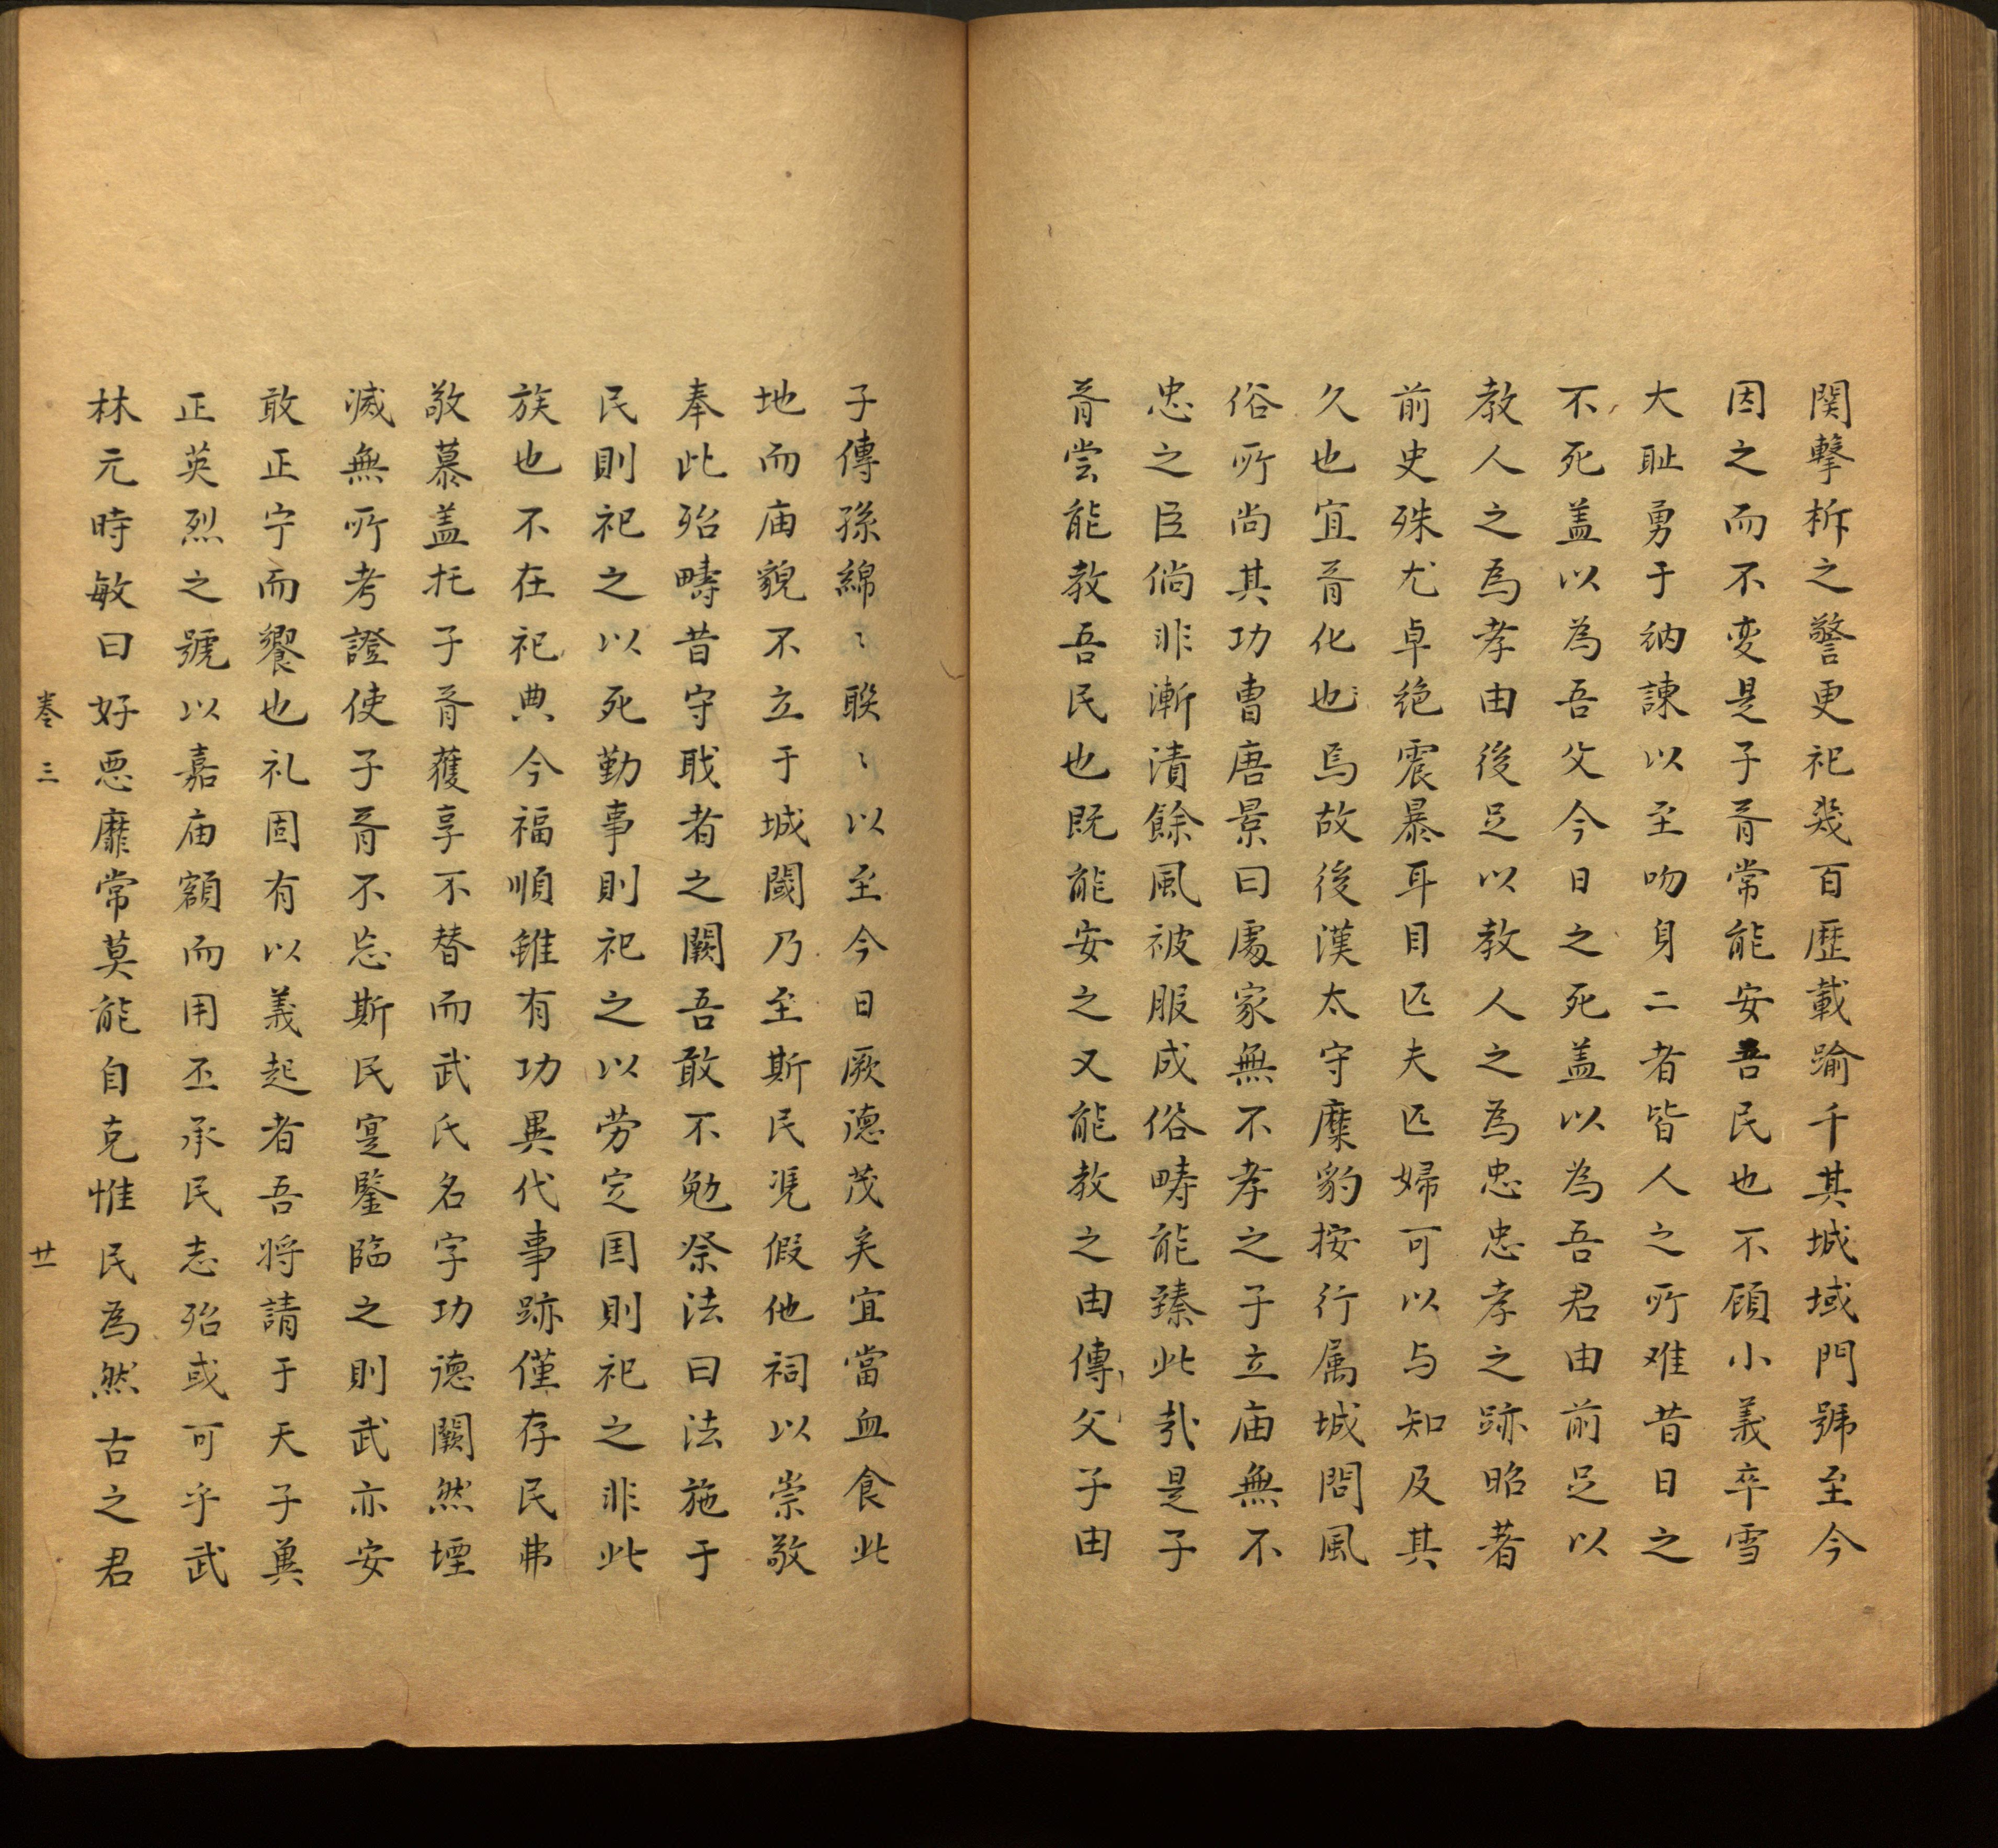 関擊柝之警更祀㡬百歴載踰千其城域門號至今
因之而不变是子胥常能安吾民也不顧小義卒雪
大耻勇于納諫以至吻身二者皆人之所难昔日之
不死盖以為吾父今日之死盖以為吾君由前足以
教人之為孝由後足以教人之為忠忠孝之跡昭著
前史殊尤卓绝震暴耳目匹夫匹婦可以与知及其
久也宜胥化也焉故後漢太守糜豹按行属城問風
俗所尚其功曹唐景曰處家無不孝之子立庙無不
忠之臣倘非漸漬餘風被服成俗畴能臻此㢤是子
胥尝能教吾民也既能安之又能教之由傳父子由
子傳孫綿〻聫〻以至今日厥德茂矣宜當血食此
地而庙貌不立于城闉乃至斯民凭假他祠以崇敬
奉此殆疇昔守戝者之闕吾敢不勉祭法曰法施于
民則祀之以死勤事則祀之以劳定国則祀之非此
族也不在祀典今福順雖有功異代事跡僅存民弗
敬慕盖托子胥獲享不替而武氏名字功德闕然堙
滅無所考證使子胥不忘斯民寔鑒臨之則武亦安
敢正宁而饗也礼固有以義起者吾将請于天子奠
正英烈之號以嘉庙額而用丕承民志殆或可乎武
林元時敏曰好悪靡常莫能自克惟民為然古之君
卷三 廿